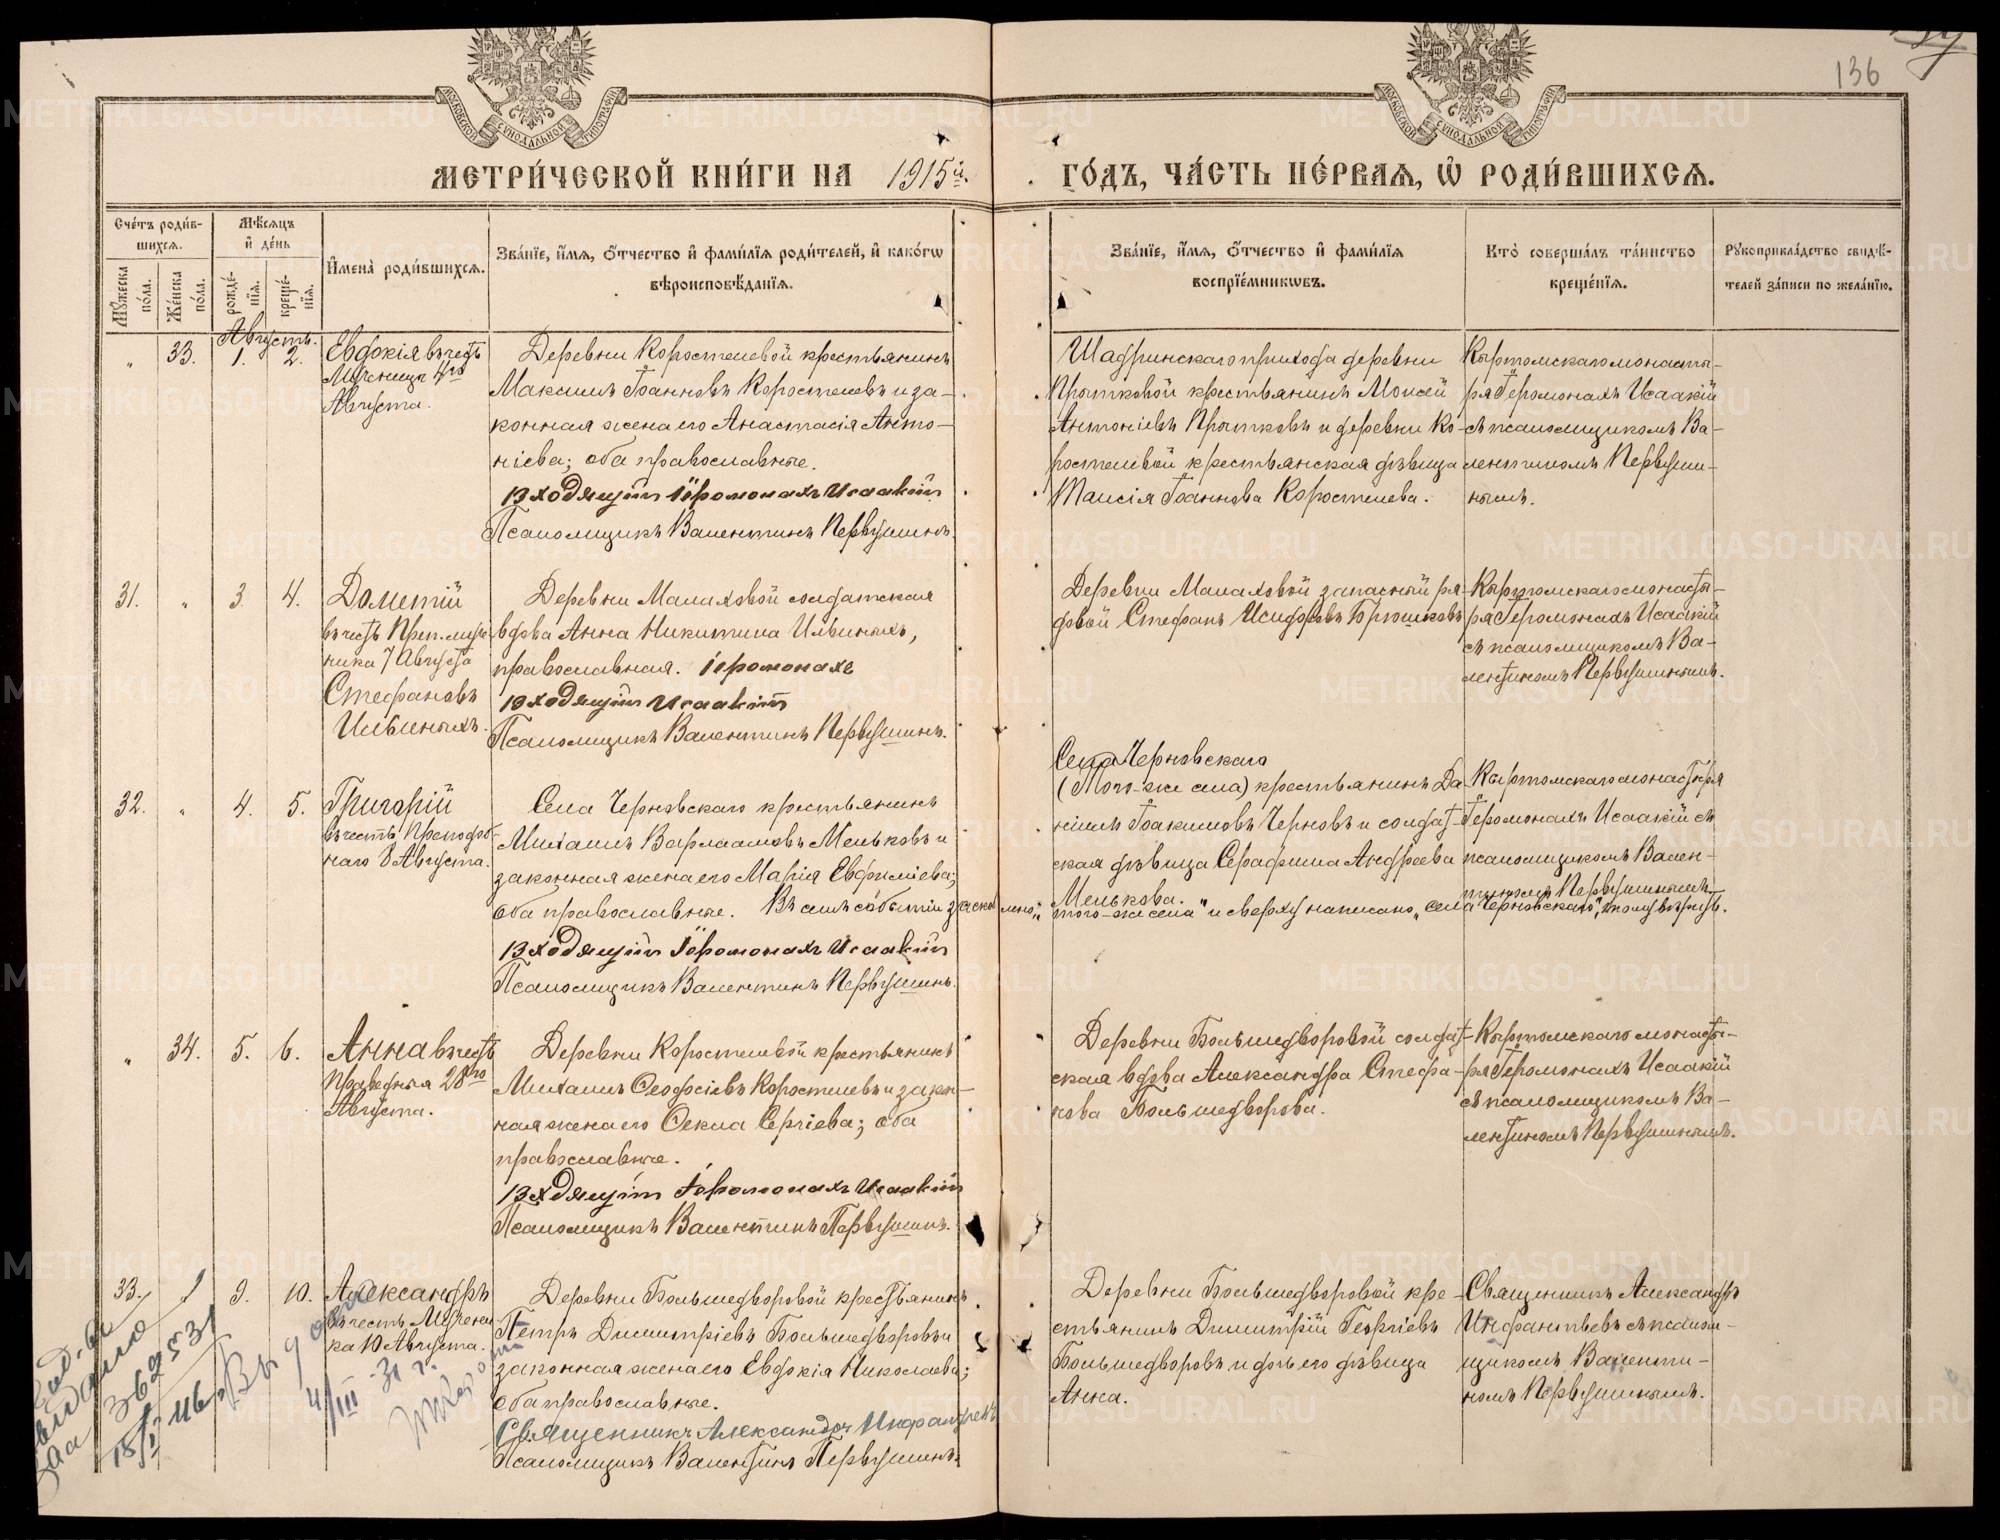 136
МОСКОВСКОЙ СѴНОДАЛЬНОЙ ТИПОГРАФІИ
МОСКОВСКОЙ СѴНОДАЛЬНОЙ ТИПОГРАФІИ
МЕТРИ́ЧЕСКОЙ КНИ́ГИ НА 1915й. ГО́ДЪ, ЧА́СТЬ ПЕ́РВАЯ, Ѡ РОДИ́ВШИХСЯ.
Сче́тъ роди́в-
шихся.
Мѣ́сяцъ
и де́нь
Мꙋ́жеска по́ла.
Же́нска по́ла.
рожде́-
нїя.
креще́-
нїя.
И҆мена̀ роди́вшихся.
Зва́нїе, и҆́мя, ѻ҆́тчество и҆ фами́лїя роди́телей, и҆ како́гѡ
вѣроисповѣ́данїя.
Зва́нїе, и҆́мя, ѻ҆́тчество и҆ фами́лїя
воспрїе́мникѡвъ.
Кто̀ соверша́лъ та́инство
креще́нїя.
Рꙋкоприкла́дство свидѣ́-
телей за́писи по жела́нїю.
Августъ.
„ 33. 1. 2.
Евдокія въ честь
Мученицы 4го
Августа.
Деревни Коростелевой крестьянинъ
Максимъ Іоанновъ Коростелевъ и за-
конная жена его Анастасія Анто-
ніева; оба православные.
Іеромонахъ Исаакій
Псаломщикъ Валентинъ Первушинъ.
Шадринскаго прихода деревни
Прытковой крестьянинъ Моисей
Антоніевъ Прытковъ и деревни Ко-
ростелевой крестьянская дѣвица
Таисія Іоаннова Коростелева.
Кыртомскаго монасты-
ря Іеромонахъ Исаакій
съ псаломщикомъ Ва-
лентиномъ Первуши-
нымъ.
31. „ 3. 4.
Дометій
въ честь Преп. муче-
ника 7 Августа
Стефановъ
Ильиныхъ.
Деревни Малаховой солдатская
вдова Анна Никитина Ильиныхъ,
православная. Іеромонахъ
Исаакій
Псаломщикъ Валентинъ Первушинъ.
Деревни Малаховой запасный ря-
довой Стефанъ Исидоровъ Брюшковъ
Кыртомскаго монасты-
ря Іеромонахъ Исаакій
съ псаломщикомъ Ва-
лентиномъ Первушинымъ.
32. „ 4. 5.
Григорій
въ честь Преподоб-
наго 8 Августа.
Села Черновскаго крестьянинъ
Михаилъ Варлаамовъ Мельковъ и
законная жена его Марія Евфиміева;
оба православные. В семъ событіи зачеркнено: „
того-же села“ и сверху написано „села Черновскаго“, тому вѣрить.
Іеромонахъ Исаакій
Псаломщикъ Валентинъ Первушинъ.
Села Черновскаго
(Того-же села) крестьянинъ Да-
ніилъ Іоакимовъ Черновъ и солдат-
ская дѣвица Серафима Андреева
Мелькова.
Кыртомскаго монастыря
Іеромонахъ Исаакій съ
псаломщикомъ Вален-
тиномъ Первушинымъ.
„ 34. 5. 6.
Анна въ честь
Праведныя 28го
Августа.
Деревни Коростелевой крестьянинъ
Михаилъ Ѳеодосіевъ Коростелевъ и закон-
ная жена его Ѳекла Сергіева; оба
православные.
Іеромонахъ Исаакій
Псаломщикъ Валентинъ Первушинъ.
Деревни Большедворовой солдат-
ская вдова Александра Стефа-
нова Большедворова.
Кыртомскаго монасты-
ря Іеромонахъ Исаакій
съ псаломщикомъ Ва-
лентиномъ Первушинымъ.
33. 9. 10.
Александръ
въ честь Мучени-
ка 10 Августа.
Деревни Большедворовой крестьянинъ
Петръ Димитріевъ Большедворовъ и
законная жена его Евдокія Николаева;
оба православные.
Священникъ Александръ Инфантьевъ
Псаломщикъ Валентинъ Первушинъ.
Деревни Большедворовой кре-
стьянинъ Димитрій Георгіевъ
Большедворовъ и дочь его дѣвица
Анна.
Священникъ Александръ
Инфантьевъ съ псалом-
щикомъ Валенти-
номъ Первушинымъ.
METRIKI.GASO-URAL.RU